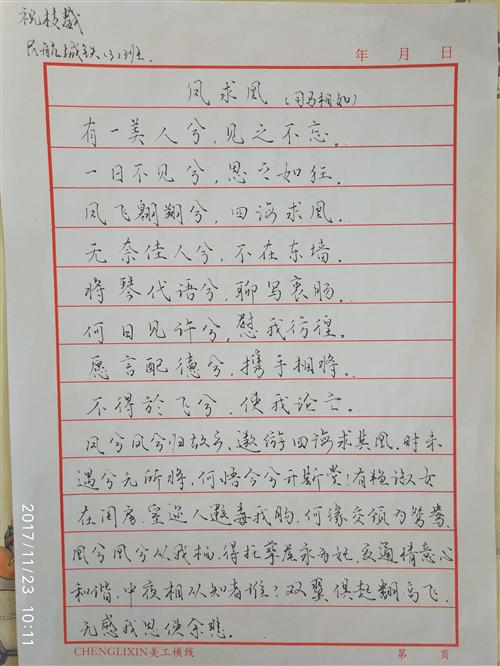 祝枝
民航城铁(3)班.
年 月 日
凤求凰 (司马相如)
有一美人兮,见之不忘。
一日不见兮,思之如狂。
凤飞翱翔兮,四海求凰。
无奈佳人兮,不在东墙。
将琴代语兮,聊写衷肠。
何日见许兮,慰我彷徨。
愿言配德兮,携手相将。
不得於飞兮,使我沦亡。
凤兮凤兮归故乡,遨游四海求其凰。时未
遇兮无所将,何悟今兮升斯堂!有艳淑女
在闺房,室迩人遐毒我肠。何缘交颈为鸳鸯,
凰兮凰兮从我栖,得托孳尾永为妃。交通情意心
和谐,中夜相从知者谁?双翼俱起翻高飞,
无感我思使余悲。
CHENGLIXIN美工横线 第 页
2017/11/23 10:11